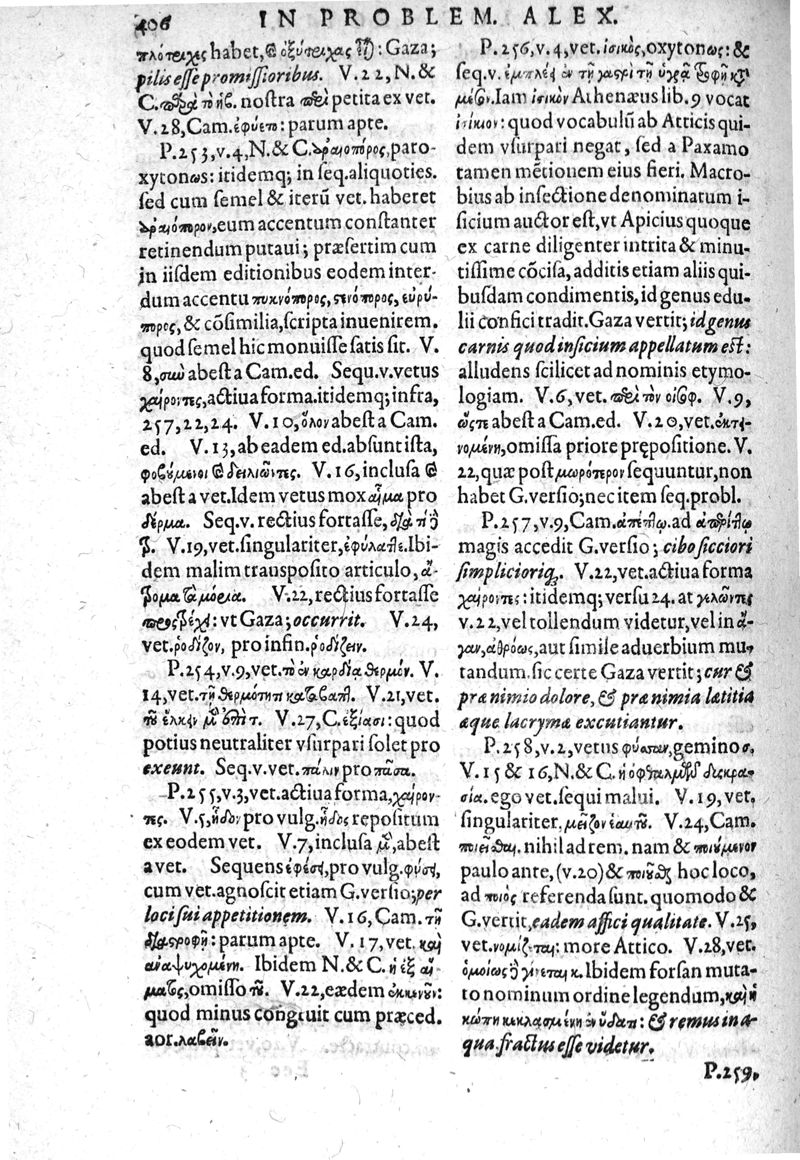 406
IN PROBLEM. ALEX.
πλότειχες habet, & ὀξύτειχας : Gaza;
pilis esse promissioribus. V.22, N. &
C. nostra petita ex vet.
V.28, Cam. ἐφύετο: parum apte.
P.253, v.4, N. & C. ἀραιοπόρος, paro-
xytonως: itidemq; in seq. aliquoties.
sed cum semel & iterū vet. haberet
ἀραιόπορον, eum accentum constanter
retinendum putaui; præsertim cum
in iisdem editionibus eodem inter-
dum accentu πυκνόπορος, στενόπορος, εὐρύ-
πορος, & cōsimilia, scripta inuenirem.
quod semel hic monuisse satis sit. V.
8, σὺν abest a Cam. ed. Sequ. v. vetus
χαίροντες, actiua forma. itidemq; infra,
257, 22, 24. V.10, ὅλον abest a Cam.
ed. V.13, ab eadem ed. absunt ista,
φοβούμενοι & δειλιῶντες. V.16, inclusa &
abest a vet. Idem vetus mox αἷμα pro
δέρμα. Seq. v. rectius fortasse,
V.19, vet. singulariter, ἐφύλαττε. Ibi-
dem malim transposito articulo,
V.22, rectius fortasse
: vt Gaza; occurrit. V.24,
vet. ῥοδίζον, pro infin. ῥοδίζειν.
P.254, v.9, vet. τὸ ἐν καρδίᾳ θερμόν. V.
14, vet. τῇ θερμότητι V.21, vet.
τοῦ ἕλκειν V.27, C. ἐξίασι: quod
potius neutraliter vsurpari solet pro
exeunt. Seq. v. vet. πάλιν pro πᾶσα.
P.255, v.3, vet. actiua forma, χαίρον-
τες. V.5, ἥδον pro vulg. ἥδος repositum
ex eodem vet. V.7, inclusa abest
a vet. Sequens ἐφέσῃ, pro vulg. φύσῃ,
cum vet. agnoscit etiam G. versio; per
loci sui appetitionem. V.16, Cam. τῇ
διαστροφῇ: parum apte. V.17, vet. καὶ
ἀναψυχομένη. Ibidem N. & C. ἢ ἐξ αἵ-
ματος, omisso τοῦ. V.22, eædem ἐκκενοῦν:
quod minus congruit cum præced.
aor. λαβεῖν.
P.256, v.4, vet. ἰσικὸς, oxytonως: &
seq. v. ἐν τῇ γαστρὶ τῇ
Iam ἰσικὸν Athenæus lib.9 vocat
ἰσίκιον: quod vocabulū ab Atticis qui-
dem vsurpari negat, sed a Paxamo
tamen mētionem eius fieri. Macro-
bius ab insectione denominatum i-
sicium auctor est, vt Apicius quoque
ex carne diligenter intrita & minu-
tissime cōcisa, additis etiam aliis qui-
busdam condimentis, id genus edu-
lii confici tradit. Gaza vertit; id genus
carnis quod insicium appellatum est:
alludens scilicet ad nominis etymo-
logiam. V.6, vet. V.9,
ὥστε abest a Cam. ed. V.20, vet. ἐκτι-
νομένη, omissa priore prępositione. V.
22, quæ post μωρότερον sequuntur, non
habet G. versio; nec item seq. probl.
P.257, v.9, Cam. ad
magis accedit G. versio; cibo sicciori
simplicioriq;. V.22, vet. actiua forma
χαίροντες: itidemq; versu 24. at γελῶντες
v.22, vel tollendum videtur, vel in ἄ-
γαν, ἀθρόως, aut simile aduerbium mu-
tandum. sic certe Gaza vertit; cur &
præ nimio dolore, & præ nimia lætitia
æque lacrymæ excutiantur.
P.258, v.2, vetus gemino σ.
V.15 & 16, N. & C. ἡ ὀφθαλμῶν δυσκρα-
σία. ego vet. sequi malui. V.19, vet.
singulariter, μεῖζον ἑαυτοῦ. V.24, Cam.
ποιεῖσθαι. nihil ad rem. nam & ποιούμενον
paulo ante, (v.20) & hoc loco,
ad ποιὸς referenda sunt. quomodo &
G. vertit, eadem affici qualitate. V.25,
vet. νομίζεται: more Attico. V.28, vet.
ὁμοίως γίνεται κ. Ibidem forsan muta-
to nominum ordine legendum, καὶ ἡ
κώπη κεκλασμένη ἐν ὕδατι: & remus in a-
qua fractus esse videtur.
P.259,